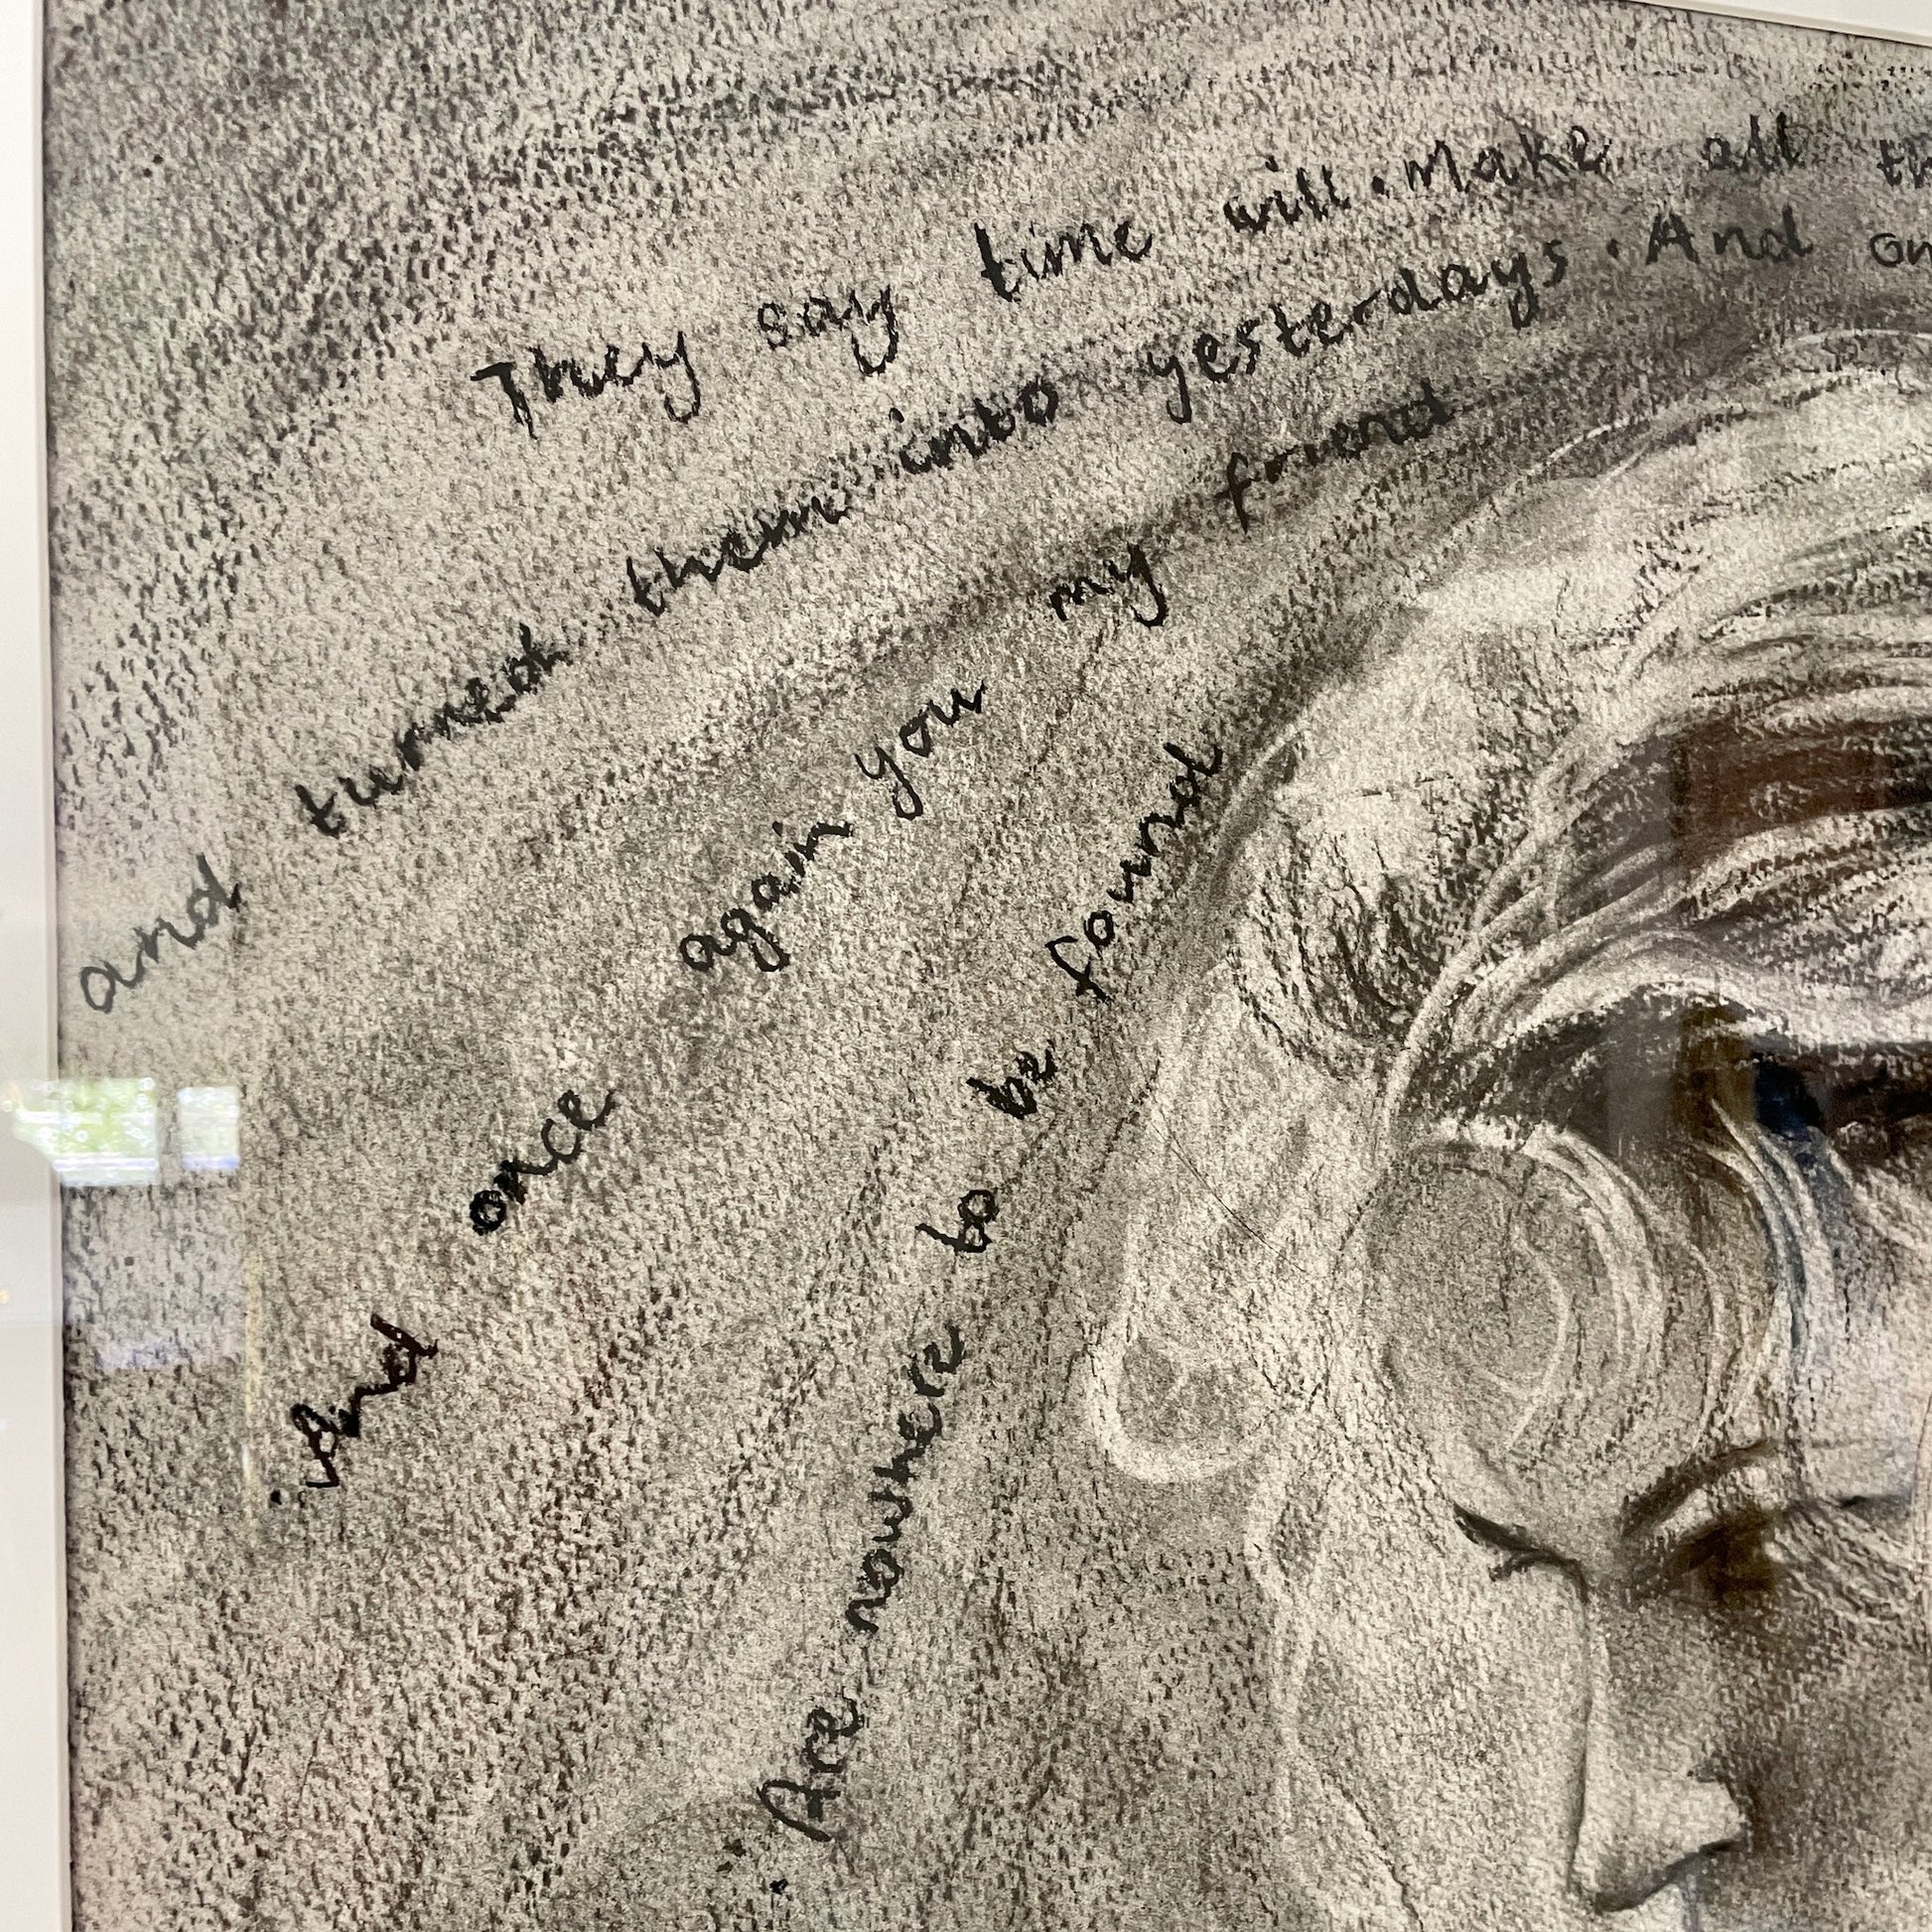 They say time will. Make all
and turned them into yesterdays. And
. And once again you my friend
. Are nowhere to be found